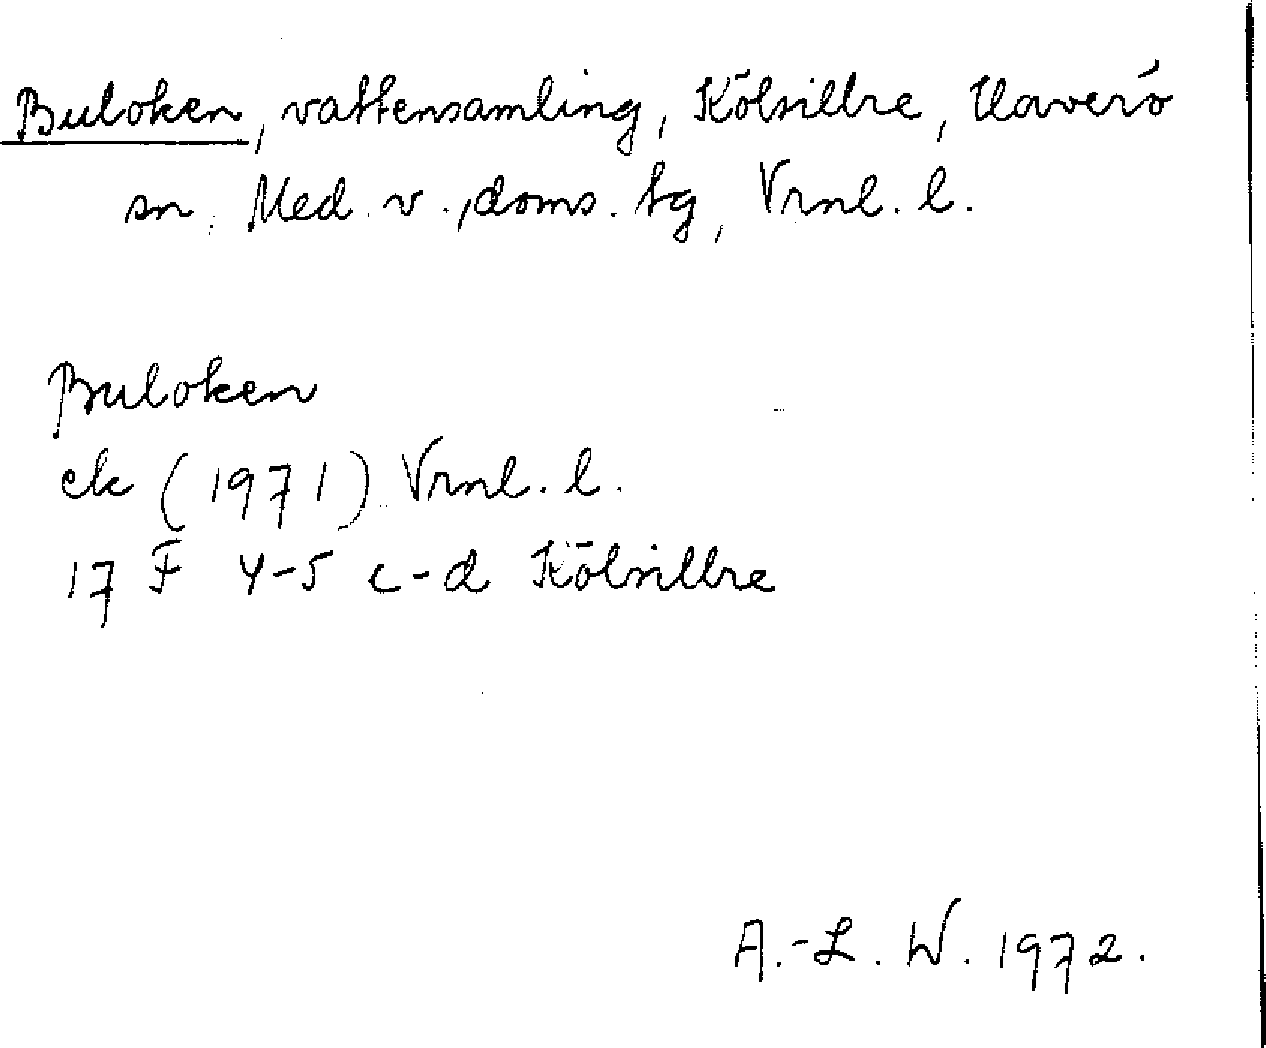 Buloken, vattensamling, Kölsillre, Haverö
sn, Med. v., doms. tg, Vrnl. l.
Buloken
ek (1971) Vrnl. l.
17 F 4-5 c-d Kölsillre
A.-L. W. 1972.